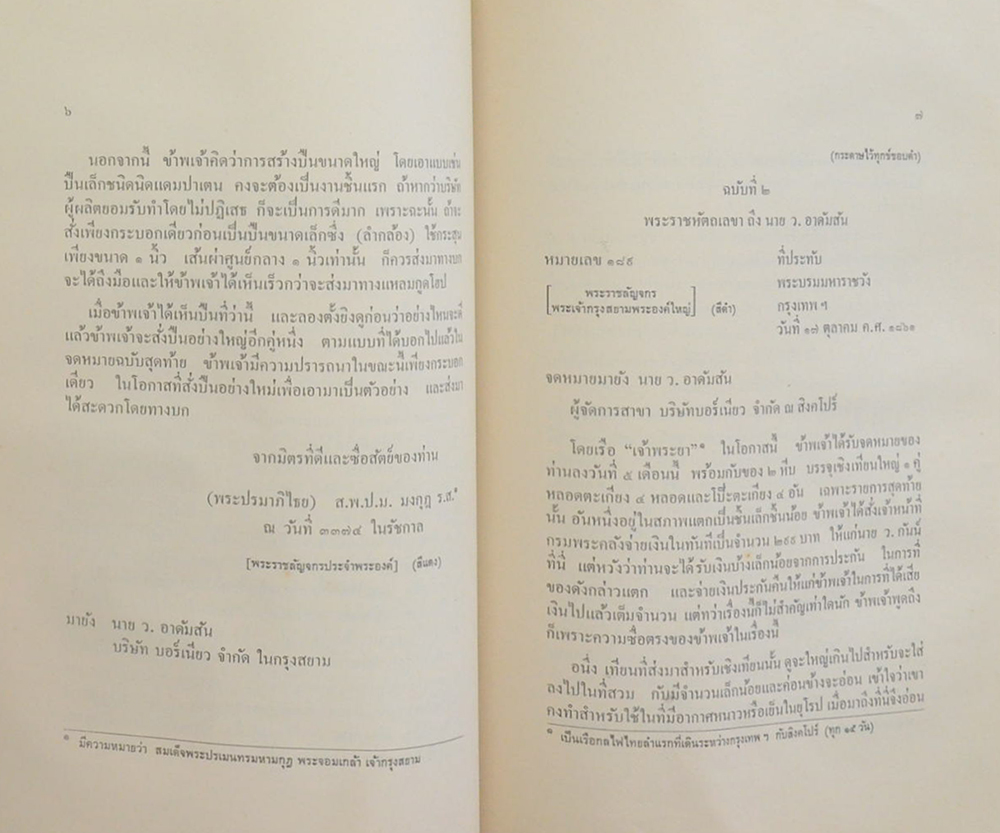 ๖
นอกจากนี้ ข้าพเจ้าคิดว่าการสร้างปืนขนาดใหญ่ โดยเอาแบบเช่น
ปืนเล็กชนิดนิดแดมปาเตน คงจะต้องเป็นงานชิ้นแรก ถ้าหากว่าบริษัท
ผู้ผลิตยอมรับทำโดยไม่ปฏิเสธ ก็จะเป็นการดีมาก เพราะฉะนั้น ถ้าจะ
สั่งเพียงกระบอกเดียวก่อนเป็นปืนขนาดเล็กซึ่ง (ลำกล้อง) ใช้กระสุน
เพียงขนาด ๑ นิ้ว เส้นผ่าศูนย์กลาง ๑ นิ้วเท่านั้น ก็ควรส่งมาทางบก
จะได้ถึงมือและให้ข้าพเจ้าได้เห็นเร็วกว่าจะส่งมาทางแหลมกูดโฮป
เมื่อข้าพเจ้าได้เห็นปืนที่ว่านี้ และลองตั้งยิงดูก่อนว่าอย่างไหนจะดี
แล้วข้าพเจ้าจะสั่งปืนอย่างใหญ่อีกคู่หนึ่ง ตามแบบที่ได้บอกไปแล้วใน
จดหมายฉบับสุดท้าย ข้าพเจ้ามีความปรารถนาในขณะนี้เพียงกระบอก
เดียว ในโอกาสที่สั่งปืนอย่างใหม่เพื่อเอามาเป็นตัวอย่าง และส่งมา
ได้สะดวกโดยทางบก
จากมิตรที่ดีและซื่อสัตย์ของท่าน
(พระปรมาภิไธย) ส.พ.ป.ม. มงกุฎ ร.ส.๑
ณ วันที่ ๓๓๗๔ ในรัชกาล
[พระราชลัญจกรประจำพระองค์] (สีแดง)
มายัง นาย ว. อาดัมสัน
บริษัท บอร์เนียว จำกัด ในกรุงสยาม
๑ มีความหมายว่า สมเด็จพระปรเมนทรมหามกุฎ พระจอมเกล้า เจ้ากรุงสยาม
๗
(กระดาษไว้ทุกข์ขอบดำ)
ฉบับที่ ๒
พระราชหัตถเลขา ถึง นาย ว. อาดัมสัน
หมายเลข ๑๘๙
ที่ประทับ
พระบรมมหาราชวัง
กรุงเทพ ฯ
วันที่ ๑๗ ตุลาคม ค.ศ. ๑๘๖๑
[พระราชลัญจกร
พระเจ้ากรุงสยามพระองค์ใหญ่] (สีดำ)
จดหมายมายัง นาย ว. อาดัมสัน
ผู้จัดการสาขา บริษัทบอร์เนียว จำกัด ณ สิงคโปร์
โดยเรือ “เจ้าพระยา”๑ ในโอกาสนี้ ข้าพเจ้าได้รับจดหมายของ
ท่านลงวันที่ ๕ เดือนนี้ พร้อมกับของ ๒ หีบ บรรจุเชิงเทียนใหญ่ ๑ คู่
หลอดตะเกียง ๔ หลอดและโป๊ะตะเกียง ๔ อัน เฉพาะรายการสุดท้าย
นั้น อันหนึ่งอยู่ในสภาพแตกเป็นชิ้นเล็กชิ้นน้อย ข้าพเจ้าได้สั่งเจ้าหน้าที่
กรมพระคลังจ่ายเงินในทันทีเป็นจำนวน ๒๙๙ บาท ให้แก่นาย ว. กันน์
ที่นี่ แต่หวังว่าท่านจะได้รับเงินบ้างเล็กน้อยจากการประกัน ในการที่
ของดังกล่าวแตก และจ่ายเงินประกันคืนให้แก่ข้าพเจ้าในการที่ได้เสีย
เงินไปแล้วเต็มจำนวน แต่ทว่าเรื่องนี้ก็ไม่สำคัญเท่าใดนัก ข้าพเจ้าพูดถึง
ก็เพราะความซื่อตรงของข้าพเจ้าในเรื่องนี้
อนึ่ง เทียนที่ส่งมาสำหรับเชิงเทียนนั้น ดูจะใหญ่เกินไปสำหรับจะใส่
ลงไปในที่สวม กับมีจำนวนเล็กน้อยและค่อนข้างจะอ่อน เข้าใจว่าเขา
คงทำสำหรับใช้ในที่มีอากาศหนาวหรือเย็นในยุโรป เมื่อมาถึงที่นี่จึงอ่อน
๑ เป็นเรือกลไฟไทยลำแรกที่เดินระหว่างกรุงเทพ ฯ กับสิงคโปร์ (ทุก ๑๕ วัน)